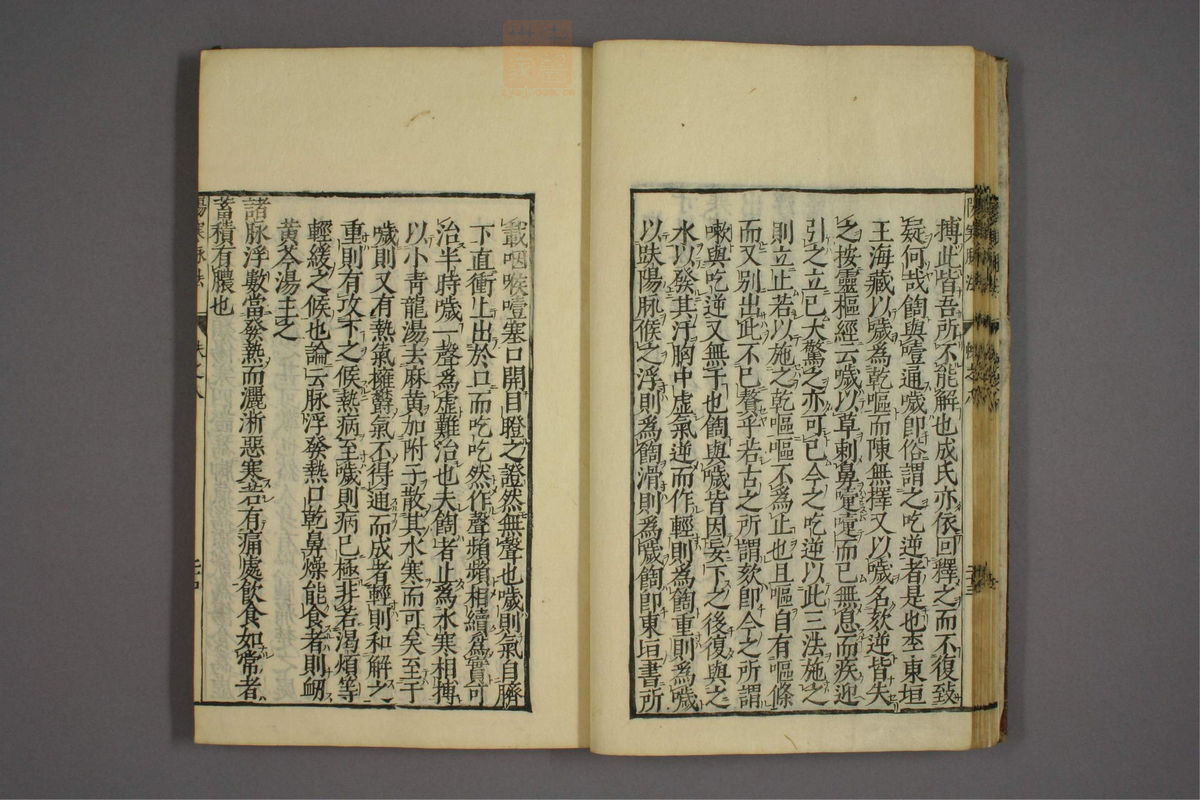 搏此皆吾所不能解也成氏亦依回釋之而不復致
疑何哉䭇與噎通噦即俗謂之吃逆者是也李東垣
王海藏以噦為乾嘔而陳無擇又以噦名欬逆皆失
之按靈樞經云噦以草刺鼻嚏嚏而已無息而疾迎
引之立已大驚之亦可已今之吃逆以此三法施之
則立止若以施之乾嘔嘔不為止也且嘔自有嘔條
而又別出此不已贅乎若古之所謂欬即今之所謂
嗽與吃逆又無干也䭇與噦皆因妄下之後復與之
水以發其汗胸中虛氣逆而作輕則為䭇重則為噦
以趺陽脉候之浮則為䭇滑則為噦䭇即東垣書所
載咽喉噎塞口開目瞪之證然無聲也噦則氣自臍
下直衝上出於口而吃吃然作聲頻頻相續為實可
治半時噦一聲為虛難治也夫䭇者止為水寒相搏
以小青龍湯去麻黃加附子散其水寒而可矣至于
噦則又有熱氣擁鬱氣不得通而成者輕則和解之
重則有攻下之候熱病至噦則病已極非若渴煩等
輕緩之候也論云脉浮發熱口乾鼻燥能食者則衂
黃芩湯主之
諸脉浮數當發熱而灑淅惡寒若有痛處飲食如常者
蓄積有膿也